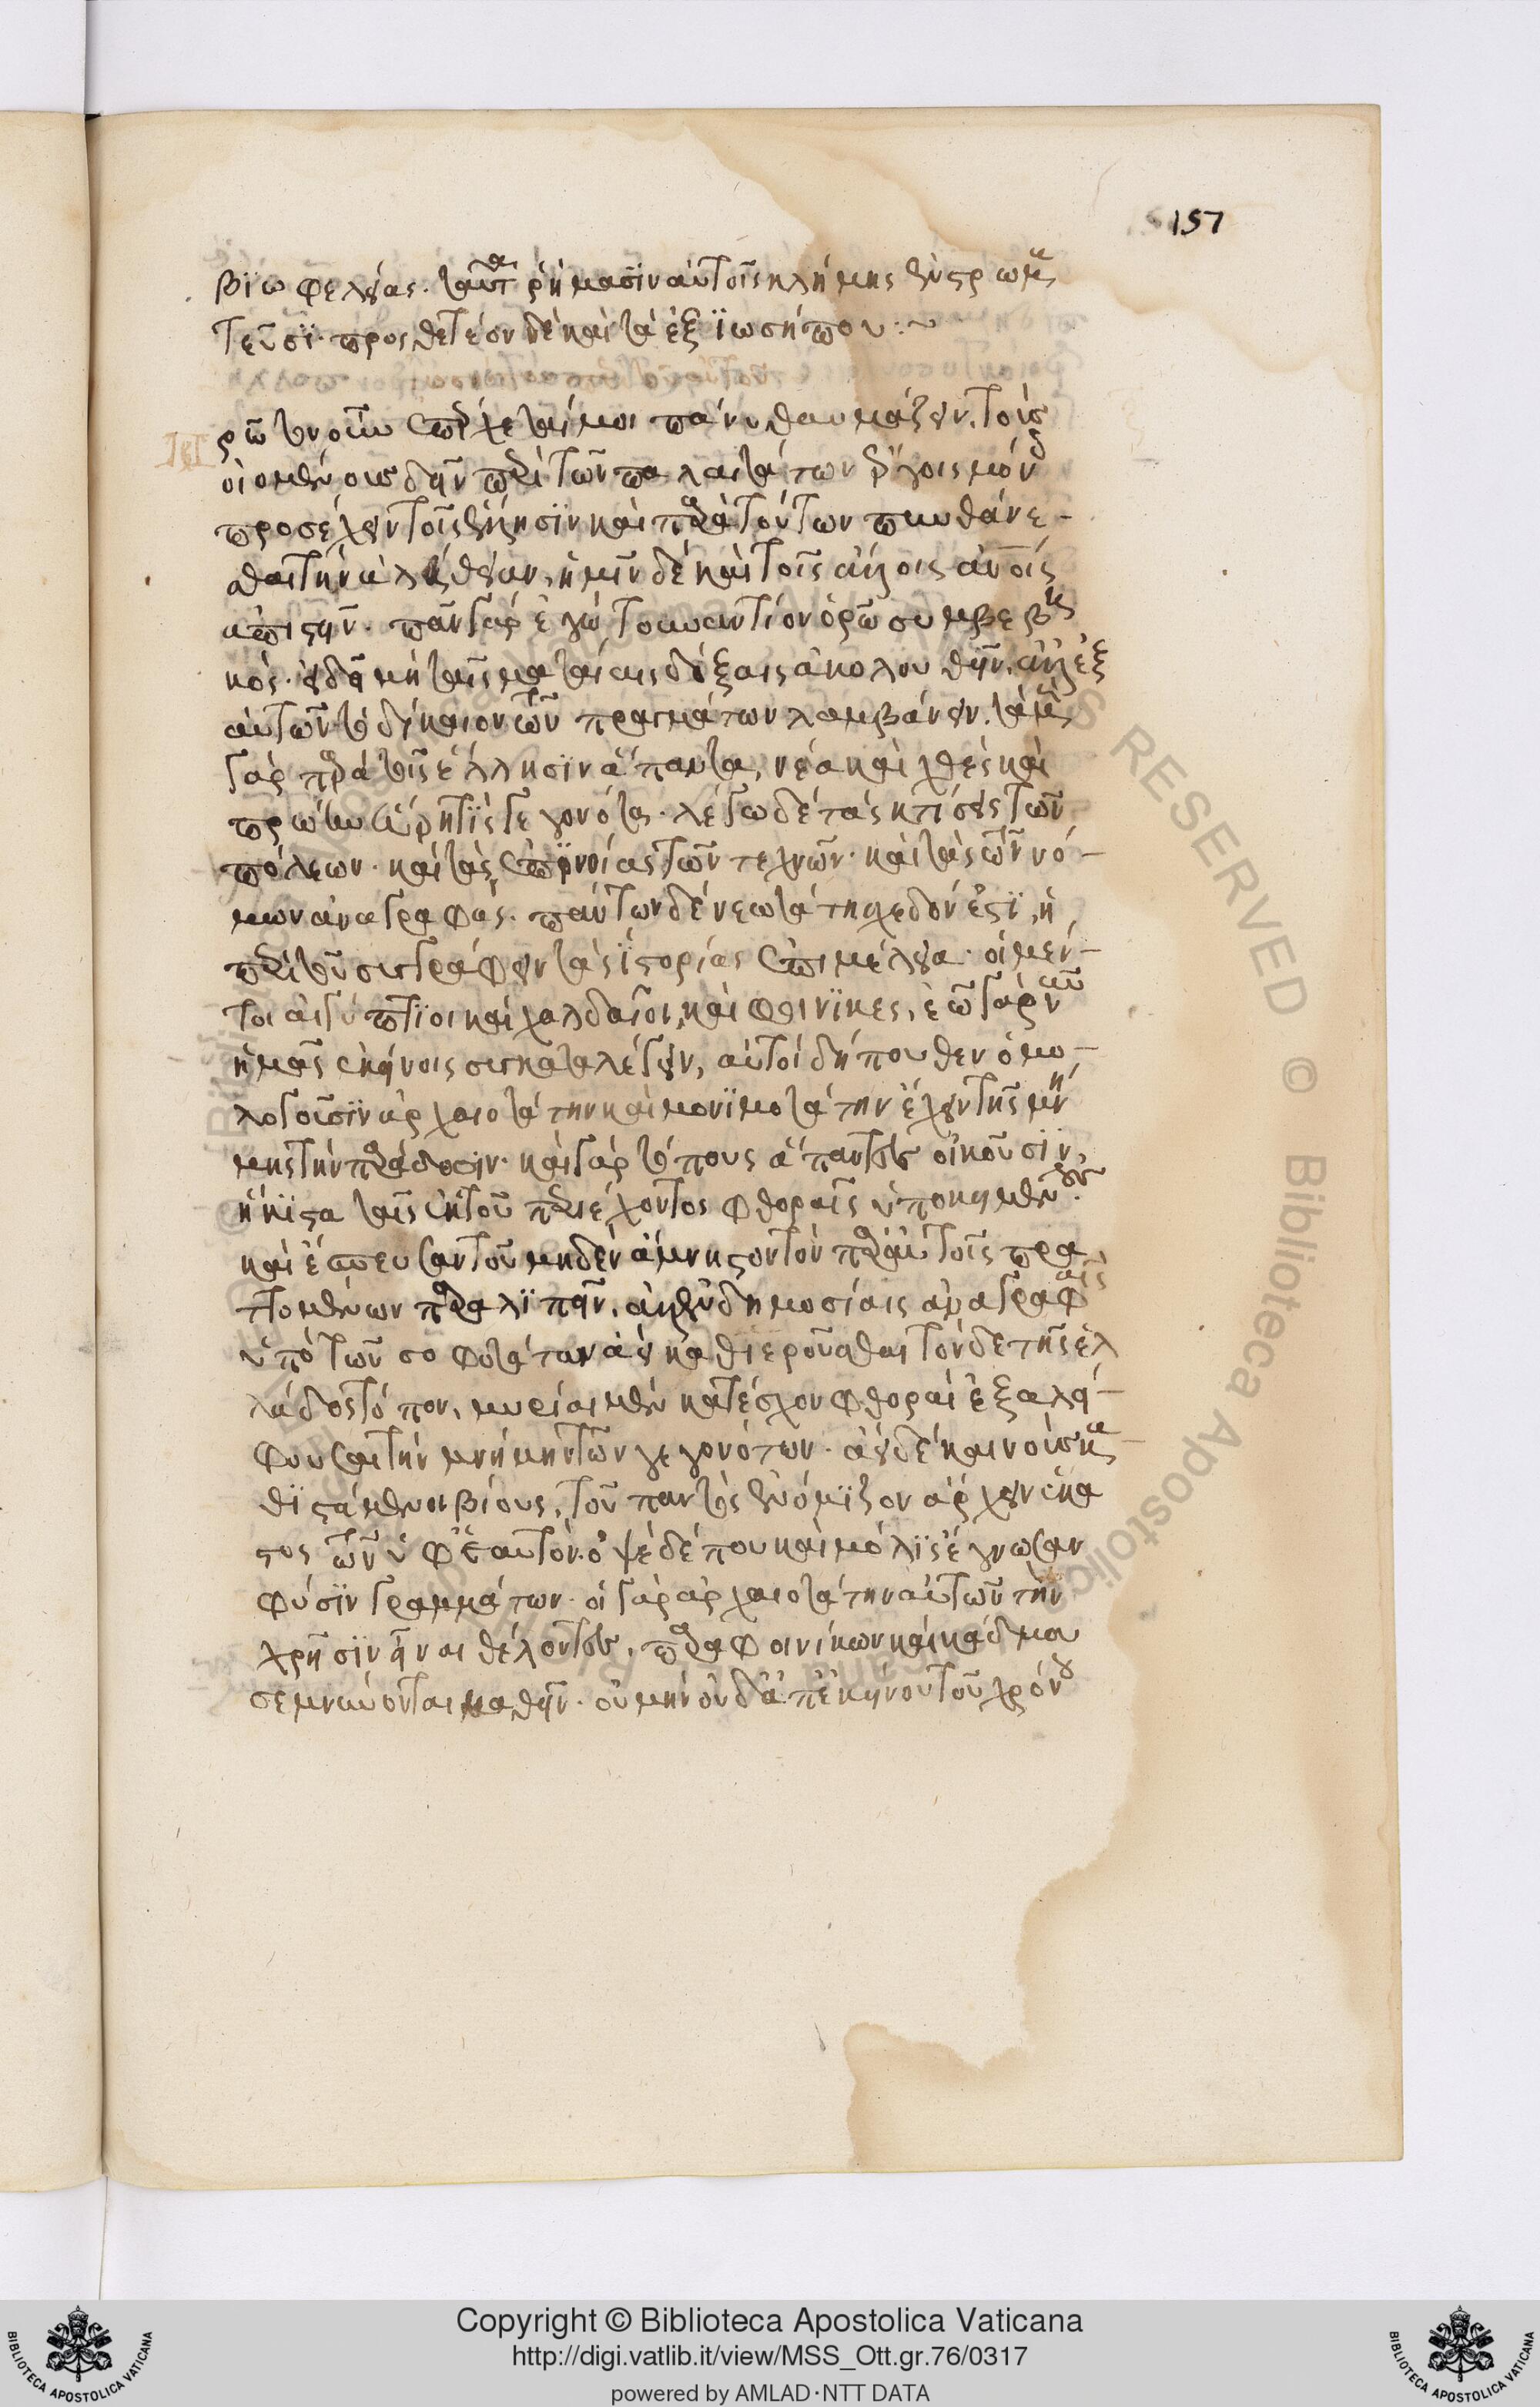 157
βίω φελείας. ταῦτα ῥήμασϊν αὐτοῖς κλήμης ἐν στρωμα
τεῦσϊ. προσθετέον δὲ καὶ τὰ ἐξ ϊωσήπου :~
ρῶτον οὖν ἐπέρχεταί μοι πάνυ θαυμάζειν. τοὺς
οἰομένους δεῖν περὶ τῶν παλαιτάτων ἔργοις μόνοις
προσέχειν τοῖς ἕλλησϊν καὶ παρὰ τούτων πυνθάνε-
σθαι τὴν ἀλήθειαν, ἡμῖν δὲ καὶ τοῖς ἄλλοις ἀνοις
ἀπιστεῖν. πᾶν γὰρ ἐγὼ τοὐναντίον ὁρῶ συμβεβη
κός. εἰ δεῖ μὴ ταῖς ματαίαις δόξαις ἀκολουθεῖν. ἀλλ ἐξ
αὐτῶν τὸ δίκαιον τῶν πραγμάτων λαμβάνειν. τὰ μὲν
γὰρ παρὰ τοῖς ἕλλησϊν ἅπαντα, νέα καὶ χθὲς καὶ
πρώτου εὕρητϊς γεγονότα. λέγω δὲ τὰς κτίσεις τῶν
πόλεων. καὶ τὰς ἐπϊνοίας τῶν τεχνῶν. καὶ τὰς τῶν νό-
μων ἀναγραφάς. πάντων δὲ νεωτάτη σχεδόν ἐστϊ, ἡ
περὶ τοῦ συγγράφειν τὰς ϊστορίας ἐπιμέλεια. οἱ μέν-
τοι αἰγύπτϊοι καὶ χαλδαῖοι, καὶ φοινϊκες, ἐῶ γὰρ νῦν
ἡμᾶς ἐκείνοις συγκαταλέγειν, αὐτοὶ δήπουθεν ὁμο-
λογοῦσϊν ἀρχαιοτάτην καὶ μονϊμοτάτην ἔχειν τῆς μνή
μης τὴν παράδοσϊν. καὶ γὰρ τόπους ἅπαντες οἰκοῦσϊν,
ἥκϊστα ταῖς ἐκ τοῦ περιέχοντος φθοραῖς ὑποκειμένους.
καὶ ἔσπευσαν τοῦ μηδὲν ἄμνηστον τὸν παρ αὐτοῖς πρα
ττομένων παραλϊπεῖν. ἀλλ ἐν δημοσίαις ἀναγραφαῖς
ὑπὸ τῶν σοφωτάτων ἀεὶ καθϊεροῦσθαι τὸν δὲ τῆς ἑλ
λάδος τόπον, μυρίαι μὲν κατέσχον φθοραὶ ἐξαλεί-
φουσαι τὴν μνήμην τῶν γεγονότων. ἀεὶ δὲ καινοὺς κα-
θϊστάμενοι βίους, τοῦ παντὸς ἐνόμϊζον ἄρχειν ἕκα
στος τῶν ὑφ ἑαυτόν. ὀψὲ δέ που καὶ μόλϊς ἔγνωσαν
φύσϊν γραμμάτων. οἱ γὰρ ἀρχαιοτάτην αὐτῶν τὴν
χρῆσϊν εἶναι θέλοντες, παρα φοινίκων καὶ κάδμου
σεμνύνονται μαθεῖν. οὐ μὴν οὐδὲ ἀπ ἐκείνου τοῦ χρόνου
Copyright © Biblioteca Apostolica Vaticana
http://digi.vatlib.it/view/MSS_Ott.gr.76/0317
powered by AMLAD·NTT DATA